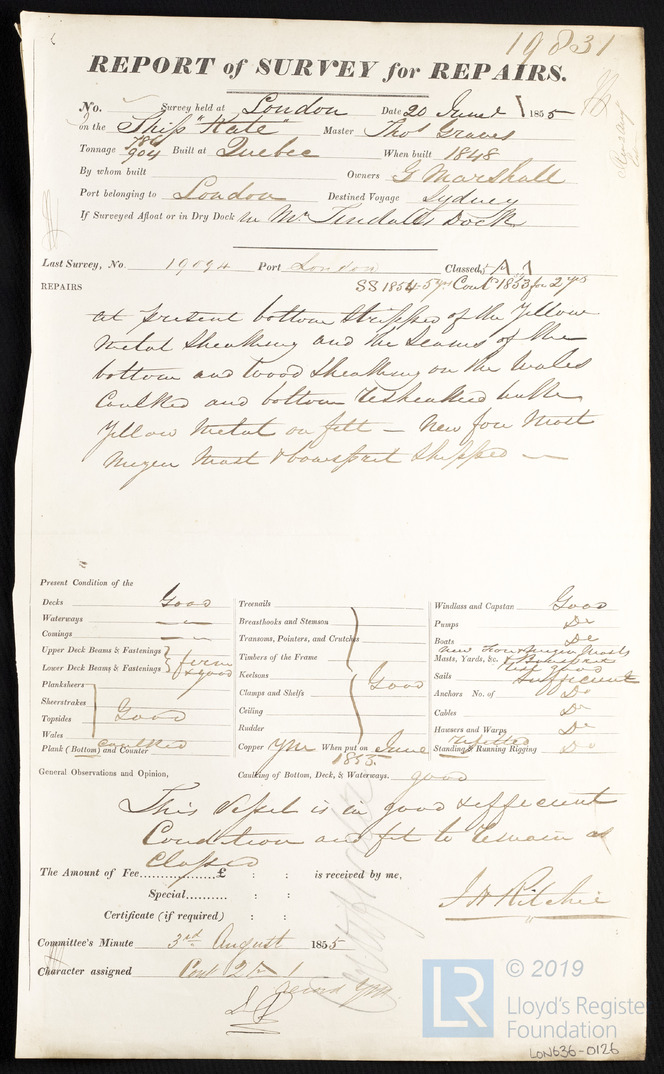 19831
REPORT of SURVEY for REPAIRS.
No. Survey held at London Date 20 June 1855
on the Ship "Kate" Master Thos Graves
Tonnage 786 904 Built at Quebec When built 1848
By whom built Owners G Marshall
Port belonging to London Destined Voyage Sydney
If Surveyed Afloat or in Dry Dock in Mr Tindalls Dock
Last Survey, No. 19094 Port London Classed, 5 A 1
SS 1854-5 yrs Cont 1853 for 2 yrs
REPAIRS
at present bottom stripped of the Yellow
Metal Sheathing and the Seams of the
bottom and Wood Sheathing on the Wales
Caulked and bottom resheathed with
Yellow Metal on felt — New fore Mast
Mizen Mast & bowsprit Shipped —
Present Condition of the
Decks Good
Waterways —
Comings —
Upper Deck Beams & Fastenings
Lower Deck Beams & Fastenings firm & good
Planksheers
Sheerstrakes
Topsides Good
Wales
Plank (Bottom) and Counter caulked
Treenails
Breasthooks and Stemson
Transoms, Pointers, and Crutches
Timbers of the Frame
Keelsons Good
Clamps and Shelfs
Ceiling
Rudder
Copper YM When put on June
1855.
Windlass and Capstan Good
Pumps Do
Boats Do
new Fore & mizen Masts
Masts, Yards, &c. & Bowsprit
rest good
Sails Sufficient
Anchors No. of Do
Cables Do
Hawsers and Warps Do
refitted
Standing & Running Rigging Do
General Observations and Opinion, Caulking of Bottom, Deck, & Waterways. good
This Vessel is in good & efficient
Condition and fit to remain as
Classed
The Amount of Fee £ : : is received by me,
Special : :
J H Ritchie
Certificate (if required) : :
Committee's Minute 3rd August 1855
Character assigned Cont 2 A 1
© 2019
LR
Lloyd's Register
Foundation
LON636-0126